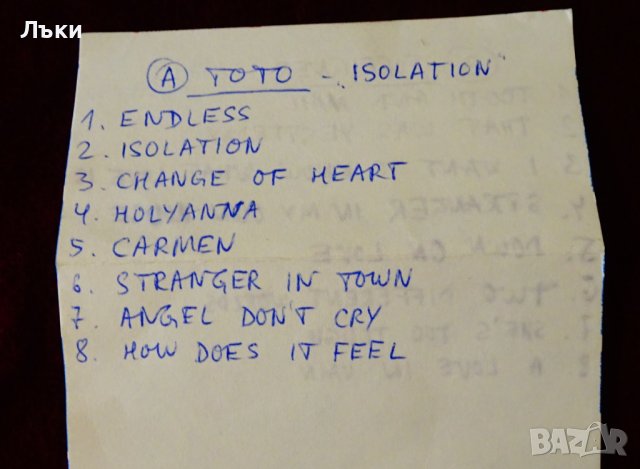 Лъки
A TOTO - "ISOLATION"
1. ENDLESS
2. ISOLATION
3. CHANGE OF HEART
4. HOLYANNA
5. CARMEN
6. STRANGER IN TOWN
7. ANGEL DON'T CRY
8. HOW DOES IT FEEL
BAZAR